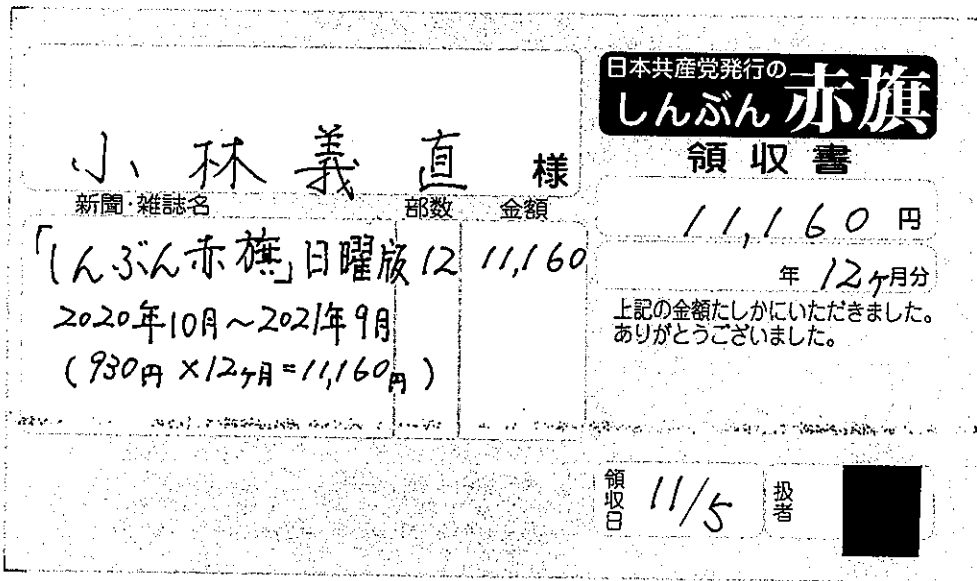 小林義直 様
新聞・雑誌名 部数 金額
「しんぶん赤旗」日曜版 12 11,160
2020年10月~2021年9月
(930円×12ヶ月=11,160円)
日本共産党発行の
しんぶん赤旗
領収書
11,160円
年 12ヶ月分
上記の金額たしかにいただきました。
ありがとうございました。
領収日 11/5 扱者